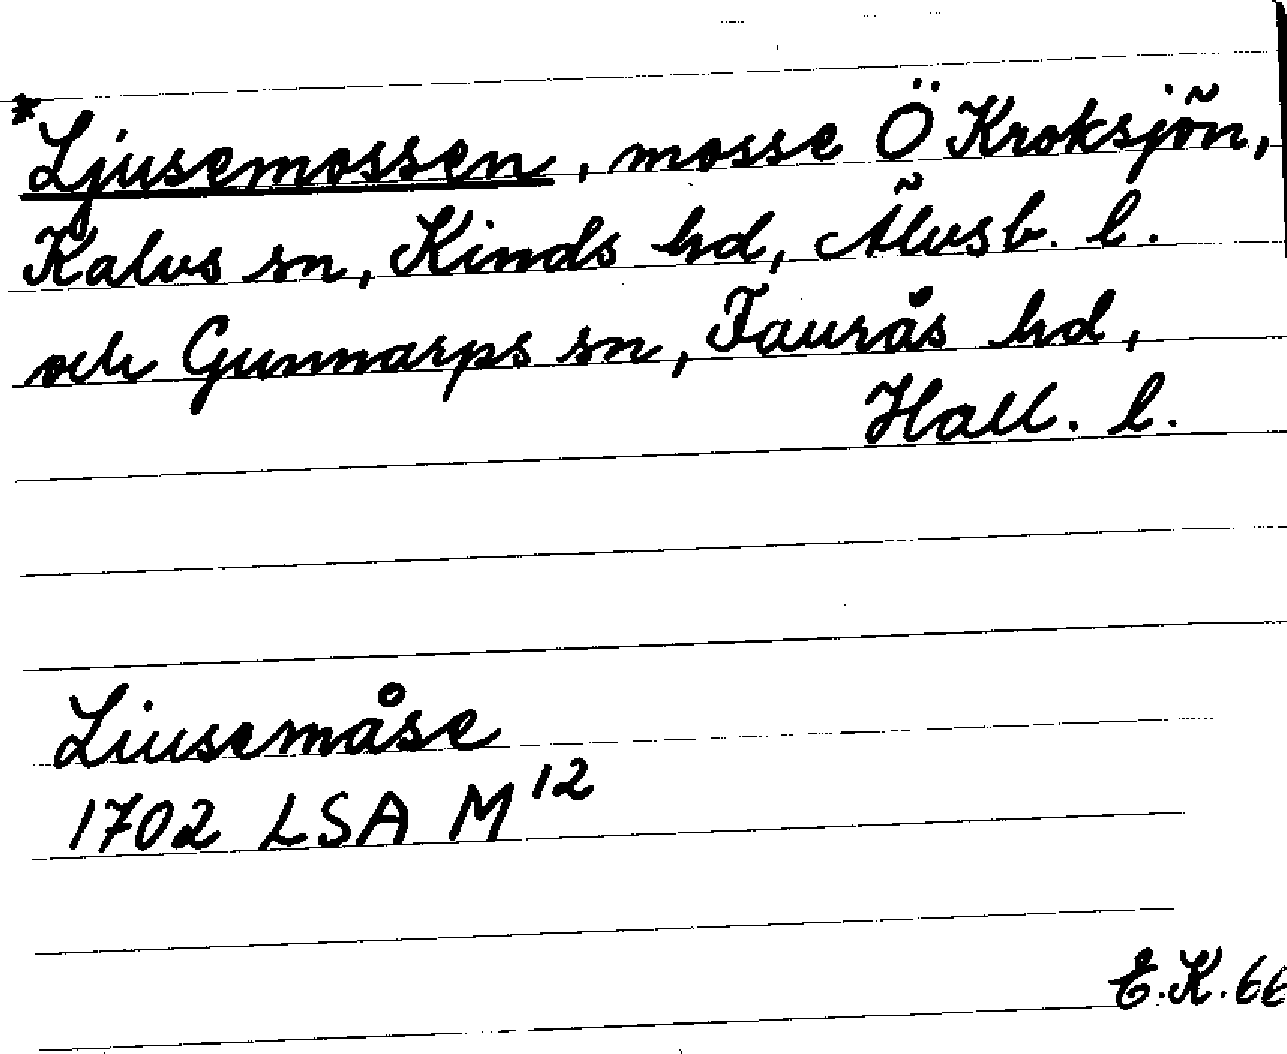 *Ljusemossen, mosse Ö Kroksjön,
Kalvs sn, Kinds hd, Älvsb. l.
och Gunnarps sn, Faurås hd,
Hall. l.
Liusemåse
1702 LSA M12
E.K. 66